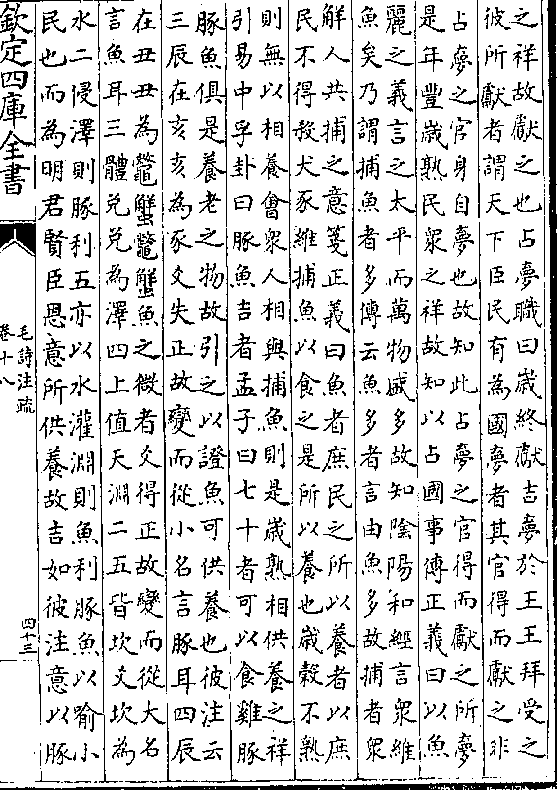 之祥故獻之也占夢職曰歲終獻吉夢於王王拜受之
彼所獻者謂天下臣民有為國夢者其官得而獻之非
占夢之官身自夢也故知此占夢之官得而獻之所夢
是年豐歲熟民衆之祥故知以占國事傳正義曰以魚
麗之義言之太平而萬物盛多故知陰陽和經言衆維
魚矣乃謂捕魚者多傳云魚多者言由魚多故捕者衆
解人共捕之意箋正義曰魚者庶民之所以養者以庶
民不得殺犬豕維捕魚以食之是所以養也歲穀不熟
則無以相養會衆人相與捕魚則是歲熟相供養之祥
引易中孚卦曰豚魚吉者孟子曰七十者可以食雞豚
豚魚俱是養老之物故引之以證魚可供養也彼注云
三辰在亥亥為豕爻失正故變而從小名言豚耳四辰
在丑丑為鼈蟹鼈蟹魚之微者爻得正故變而從大名
言魚耳三體兌兌為澤四上值天淵二五皆坎爻坎為
水二侵澤則豚利五亦以水灌淵則魚利豚魚以喻小
民也而為明君賢臣恩意所供養故吉如彼注意以豚
欽定四庫全書
毛詩注疏
卷十八
四十三